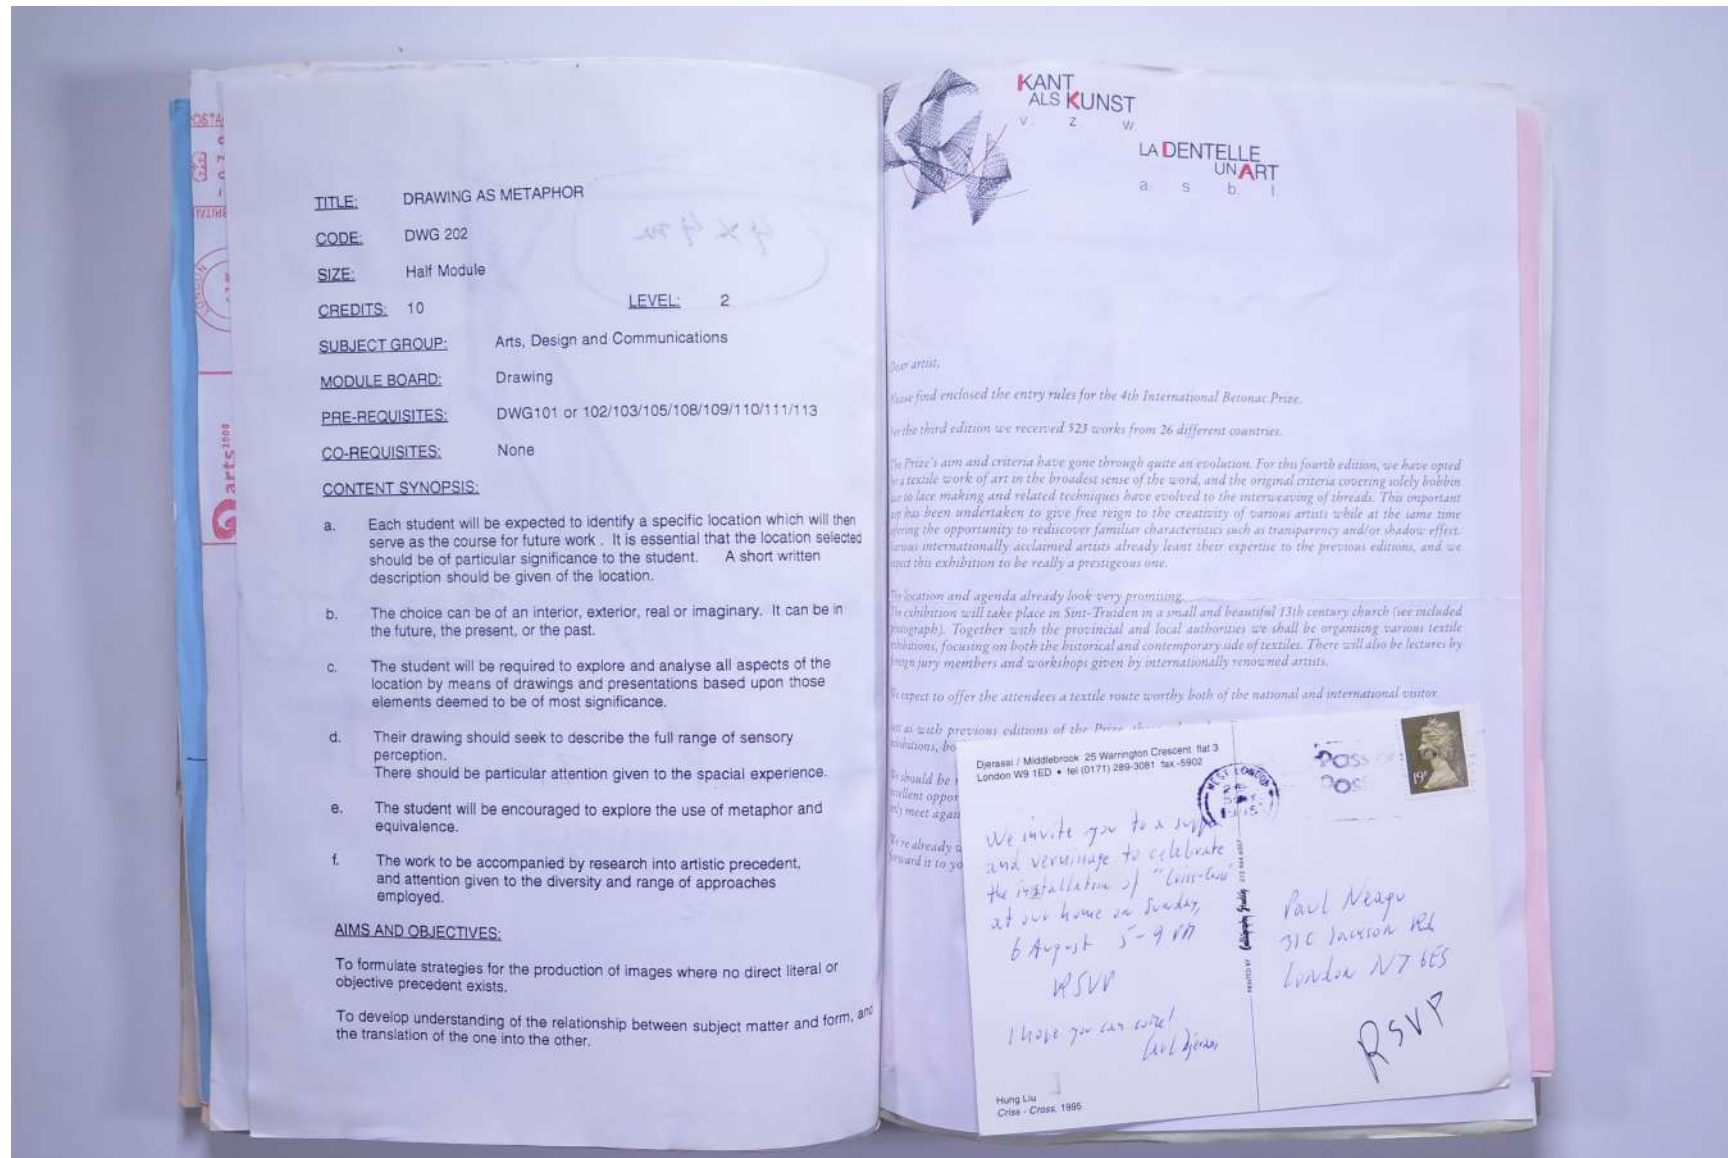 TITLE: DRAWING AS METAPHOR
CODE: DWG 202
SIZE: Half Module
CREDITS: 10 LEVEL: 2
SUBJECT GROUP: Arts, Design and Communications
MODULE BOARD: Drawing
PRE-REQUISITES: DWG101 or 102/103/105/108/109/110/111/113
CO-REQUISITES: None
CONTENT SYNOPSIS:
a. Each student will be expected to identify a specific location which will then
serve as the course for future work . It is essential that the location selected
should be of particular significance to the student. A short written
description should be given of the location.
b. The choice can be of an interior, exterior, real or imaginary. It can be in
the future, the present, or the past.
c. The student will be required to explore and analyse all aspects of the
location by means of drawings and presentations based upon those
elements deemed to be of most significance.
d. Their drawing should seek to describe the full range of sensory
perception.
There should be particular attention given to the spacial experience.
e. The student will be encouraged to explore the use of metaphor and
equivalence.
f. The work to be accompanied by research into artistic precedent,
and attention given to the diversity and range of approaches
employed.
AIMS AND OBJECTIVES:
To formulate strategies for the production of images where no direct literal or
objective precedent exists.
To develop understanding of the relationship between subject matter and form, and
the translation of the one into the other.
arts2000
LONDON
KANT
ALS KUNST
v. z. w.
LA DENTELLE
UN ART
a. s. b. l.
Dear artist,
Please find enclosed the entry rules for the 4th International Betonac Prize.
For the third edition we received 523 works from 26 different countries.
The Prize's aim and criteria have gone through quite an evolution. For this fourth edition, we have opted
a textile work of art in the broadest sense of the word, and the original criteria covering solely bobbin
lace making and related techniques have evolved to the interweaving of threads. This important
has been undertaken to give free reign to the creativity of various artists while at the same time
the opportunity to rediscover familiar characteristics such as transparency and/or shadow effect.
internationally acclaimed artists already leant their expertise to the previous editions, and we
this exhibition to be really a prestigeous one.
The location and agenda already look very promising.
The exhibition will take place in Sint-Truiden in a small and beautiful 13th century church (see included
photograph). Together with the provincial and local authorities we shall be organising various textile
exhibitions, focusing on both the historical and contemporary side of textiles. There will also be lectures by
foreign jury members and workshops given by internationally renowned artists.
We expect to offer the attendees a textile route worthy both of the national and international visitor.
as with previous editions of the Prize,
should be
meet again
We're already
forward it to yo
Djerassi / Middlebrook 25 Warrington Crescent flat 3
London W9 1ED • tel (0171) 289-3081 fax -5902
WEST LONDON
1995
19P
We invite you to a supper
and vernissage to celebrate
the installation of "Criss-Cross"
at our home on Sunday,
6 August 5-9 PM
RSVP
I hope you can come!
Carl Djerassi
Hung Liu
Criss - Cross, 1995
PRINTED BY Calligraphy Studios
Paul Neagu
31C Jackson Rd
London N7 6ES
RSVP